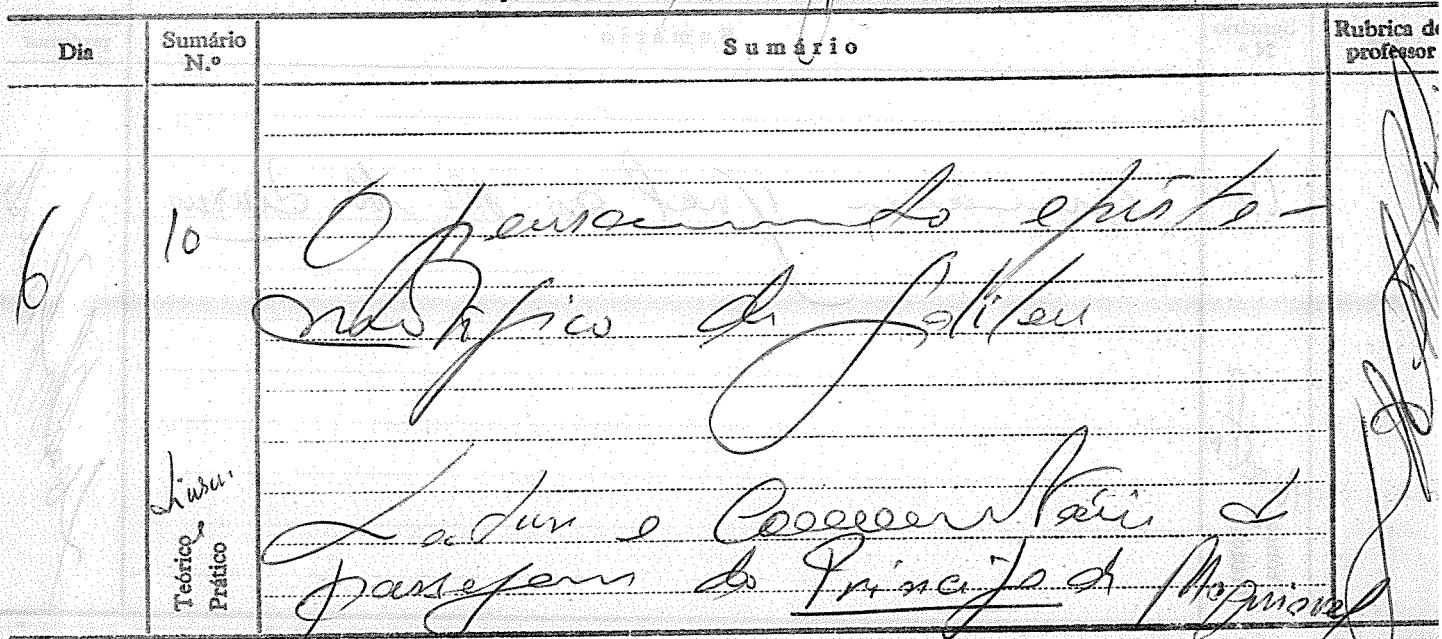 Dia
Sumário
N.º
Sumário
Rubrica do
professor
6
10
O pensamento episte-
mológico de Galileu
Teórico e
Prático
Leitura e Comentário de
passagens do Príncipe de Maquiavel